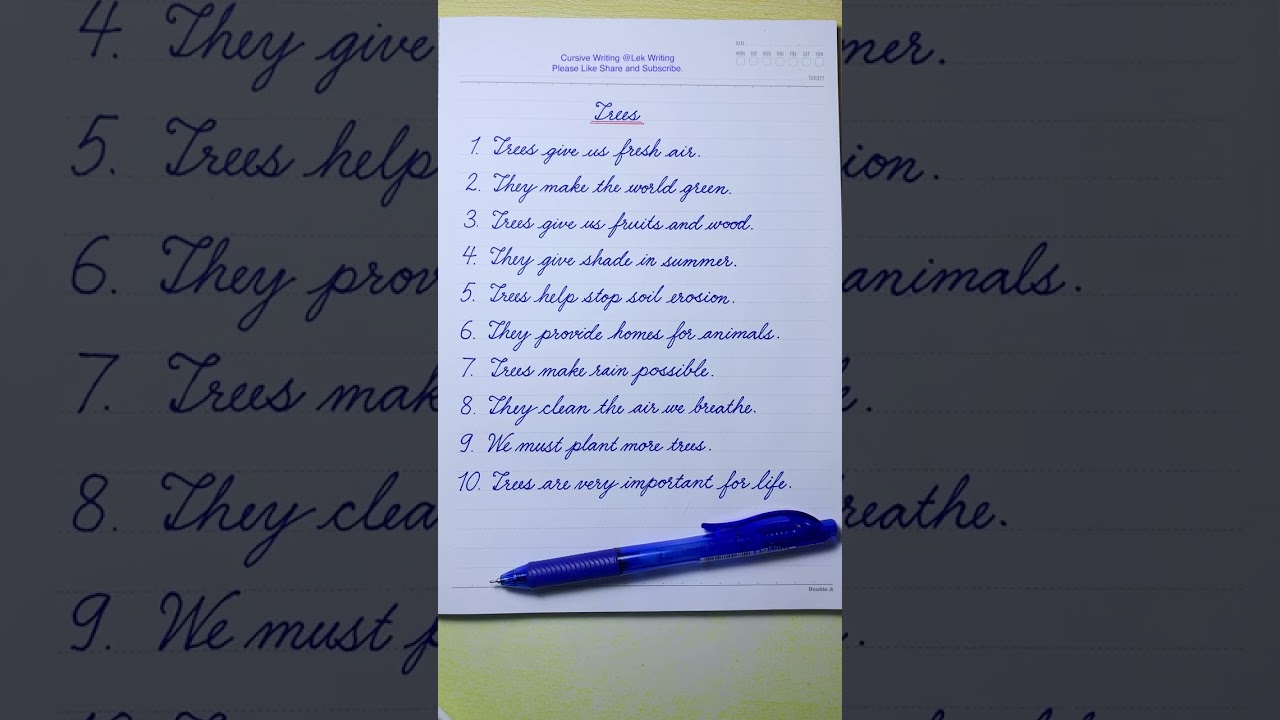 Cursive Writing @Lek Writing
Please Like Share and Subscribe.
DATE
MON TUE WED THU FRI SAT SUN
SUBJECT
Trees
1. Trees give us fresh air.
2. They make the world green.
3. Trees give us fruits and wood.
4. They give shade in summer.
5. Trees help stop soil erosion.
6. They provide homes for animals.
7. Trees make rain possible.
8. They clean the air we breathe.
9. We must plant more trees.
10. Trees are very important for life.
Double A